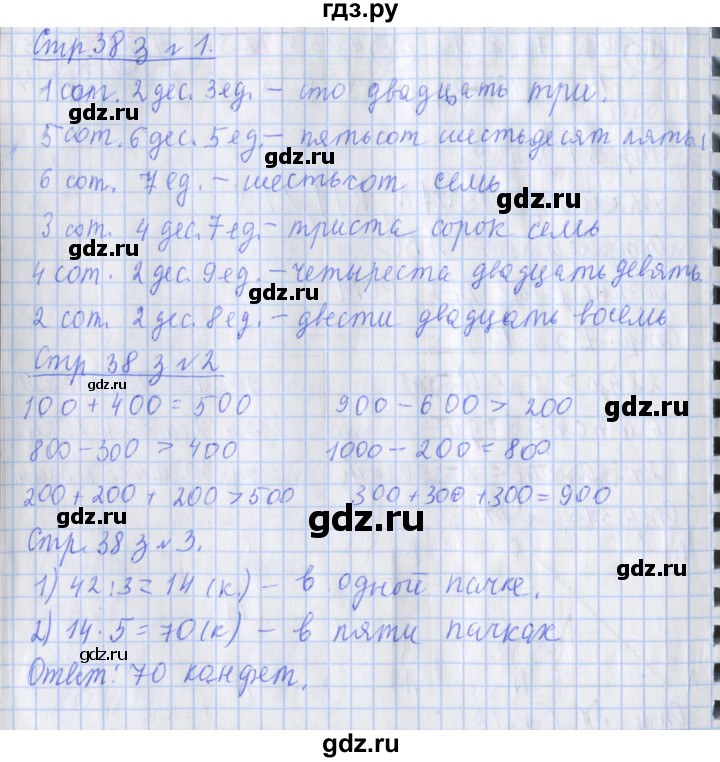 гдз.ру
Стр. 38 з № 1.
1 сот. 2 дес. 3 ед. – сто двадцать три.
gdz.ru
5 сот. 6 дес. 5 ед. – пятьсот шестьдесят пять
gdz.ru
6 сот. 7 ед. – шестьсот семь
gdz.ru
3 сот. 4 дес. 7 ед. – триста сорок семь
gdz.ru
4 сот. 2 дес. 9 ед. – четыреста двадцать девять
gdz.ru
2 сот. 2 дес. 8 ед. – двести двадцать восемь
Стр 38 з № 2
gdz.ru
100 + 400 = 500 900 – 600 > 200
gdz.ru
800 – 300 > 400 1000 – 200 = 800
200 + 200 + 200 > 500 300 + 300 + 300 = 900
gdz.ru
gdz.ru
Стр. 38 з № 3.
gdz.ru
1) 42 : 3 = 14 (к.) – в одной пачке.
2) 14 · 5 = 70 (к) – в пяти пачках
gdz.ru
Ответ: 70 конфет.
gdz.ru
gdz.ru